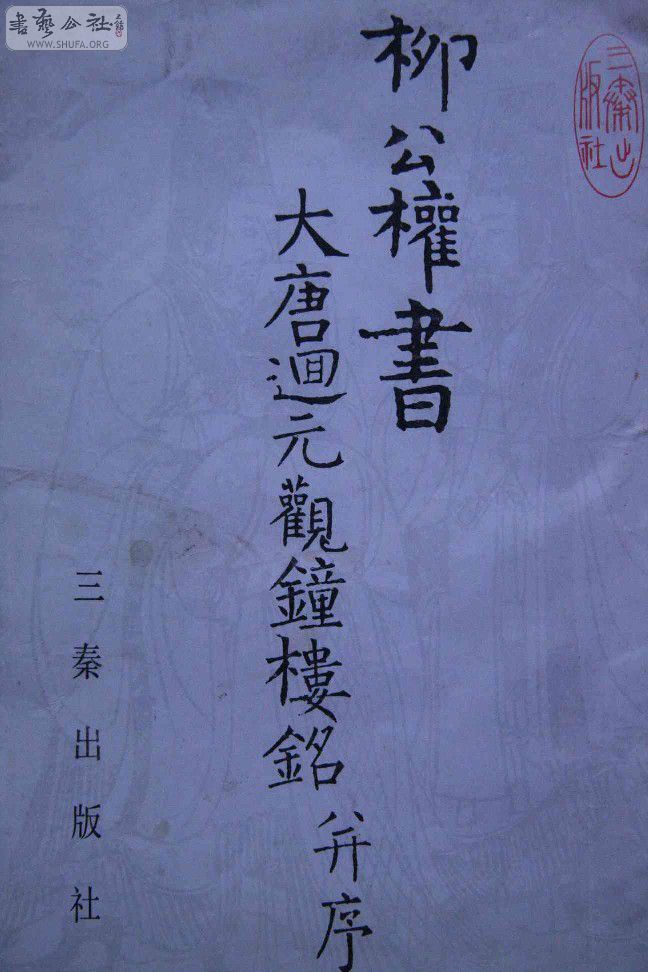 書藝公社
WWW.SHUFA.ORG
三秦出版社
柳公權書
大唐迴元觀鐘樓銘并序
三秦出版社